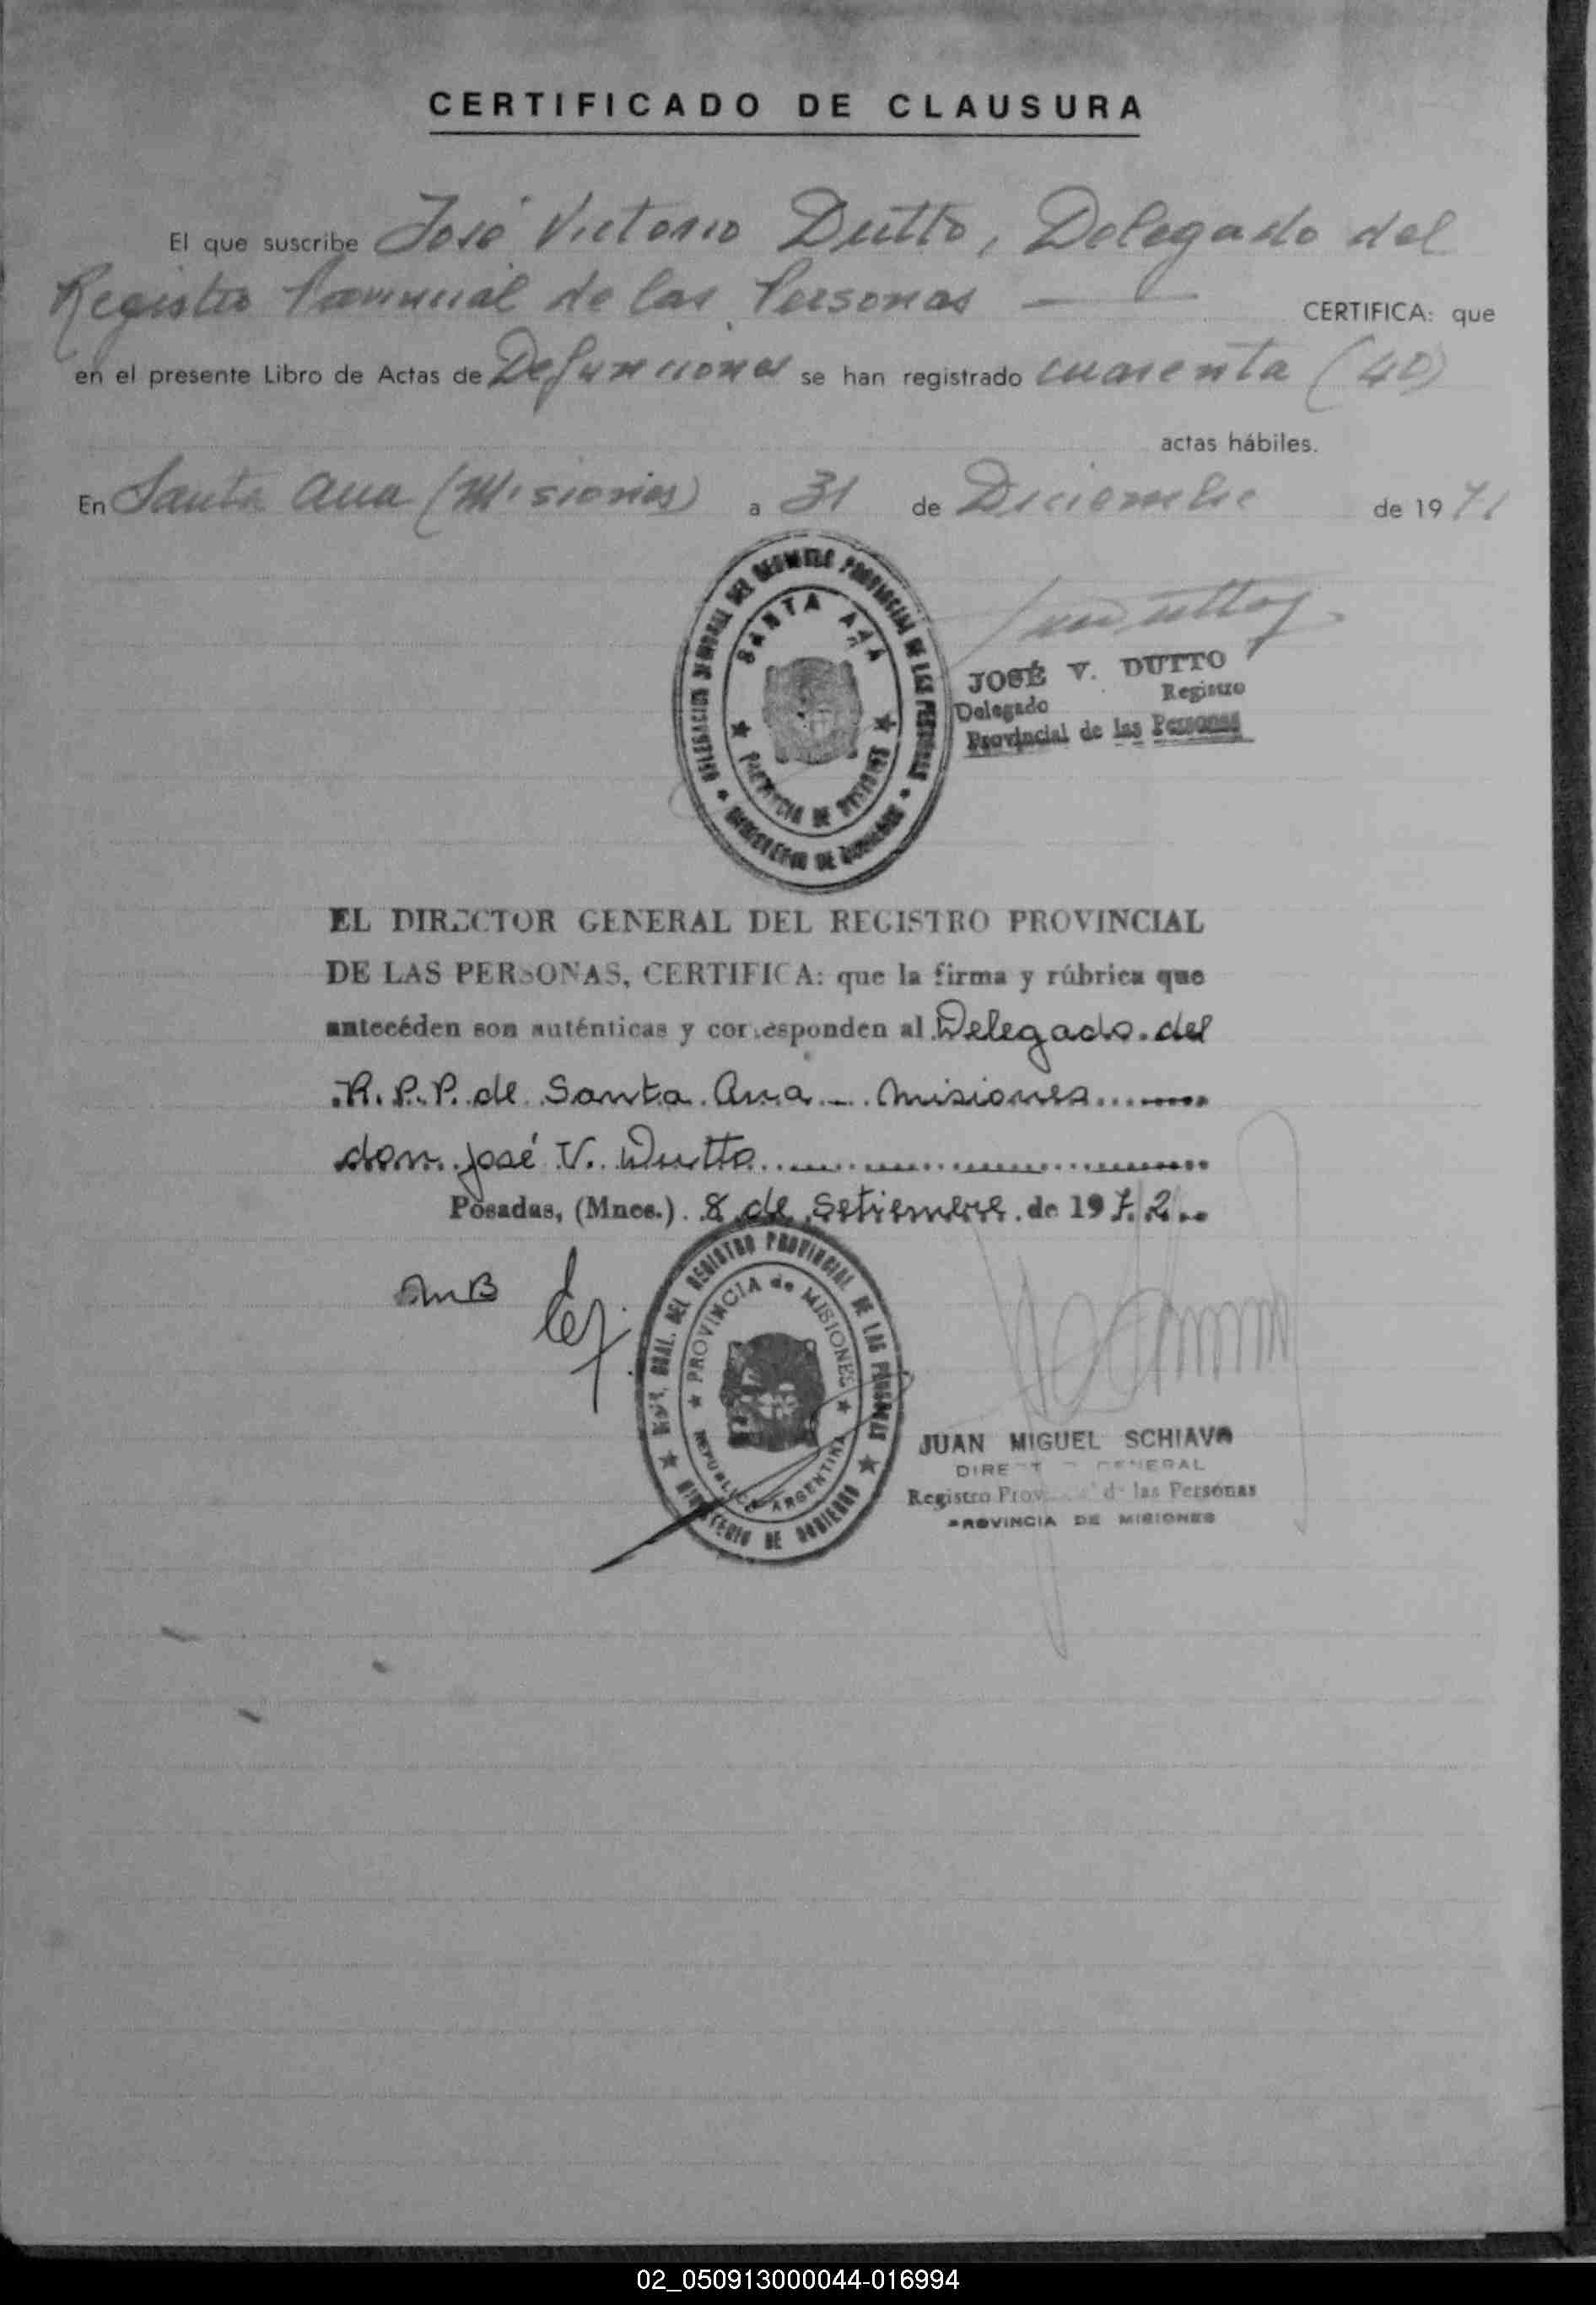 CERTIFICADO DE CLAUSURA
El que suscribe José Victorio Dutto, Delegado del
Registro Provincial de las Personas — CERTIFICA: que
en el presente Libro de Actas de Defunciones se han registrado cuarenta (40)
actas hábiles.
En Santa Ana (Misiones) a 31 de Diciembre de 1971
SANTA ANA
PROVINCIA DE MISIONES
JOSÉ V. DUTTO
Delegado Registro
Provincial de las Personas
EL DIRECTOR GENERAL DEL REGISTRO PROVINCIAL
DE LAS PERSONAS, CERTIFICA: que la firma y rúbrica que
antecéden son auténticas y corresponden al Delegado del
R.P.P. de Santa Ana - Misiones
don José V. Dutto
Posadas, (Mnes.) 8 de Setiembre de 1972
AmB
DIR. GRAL. DEL REGISTRO PROVINCIAL DE LAS PERSONAS
PROVINCIA de MISIONES
REPUBLICA ARGENTINA
MINISTERIO DE GOBIERNO
JUAN MIGUEL SCHIAVO
DIRECTOR GENERAL
Registro Provincial de las Personas
PROVINCIA DE MISIONES
02_050913000044-016994